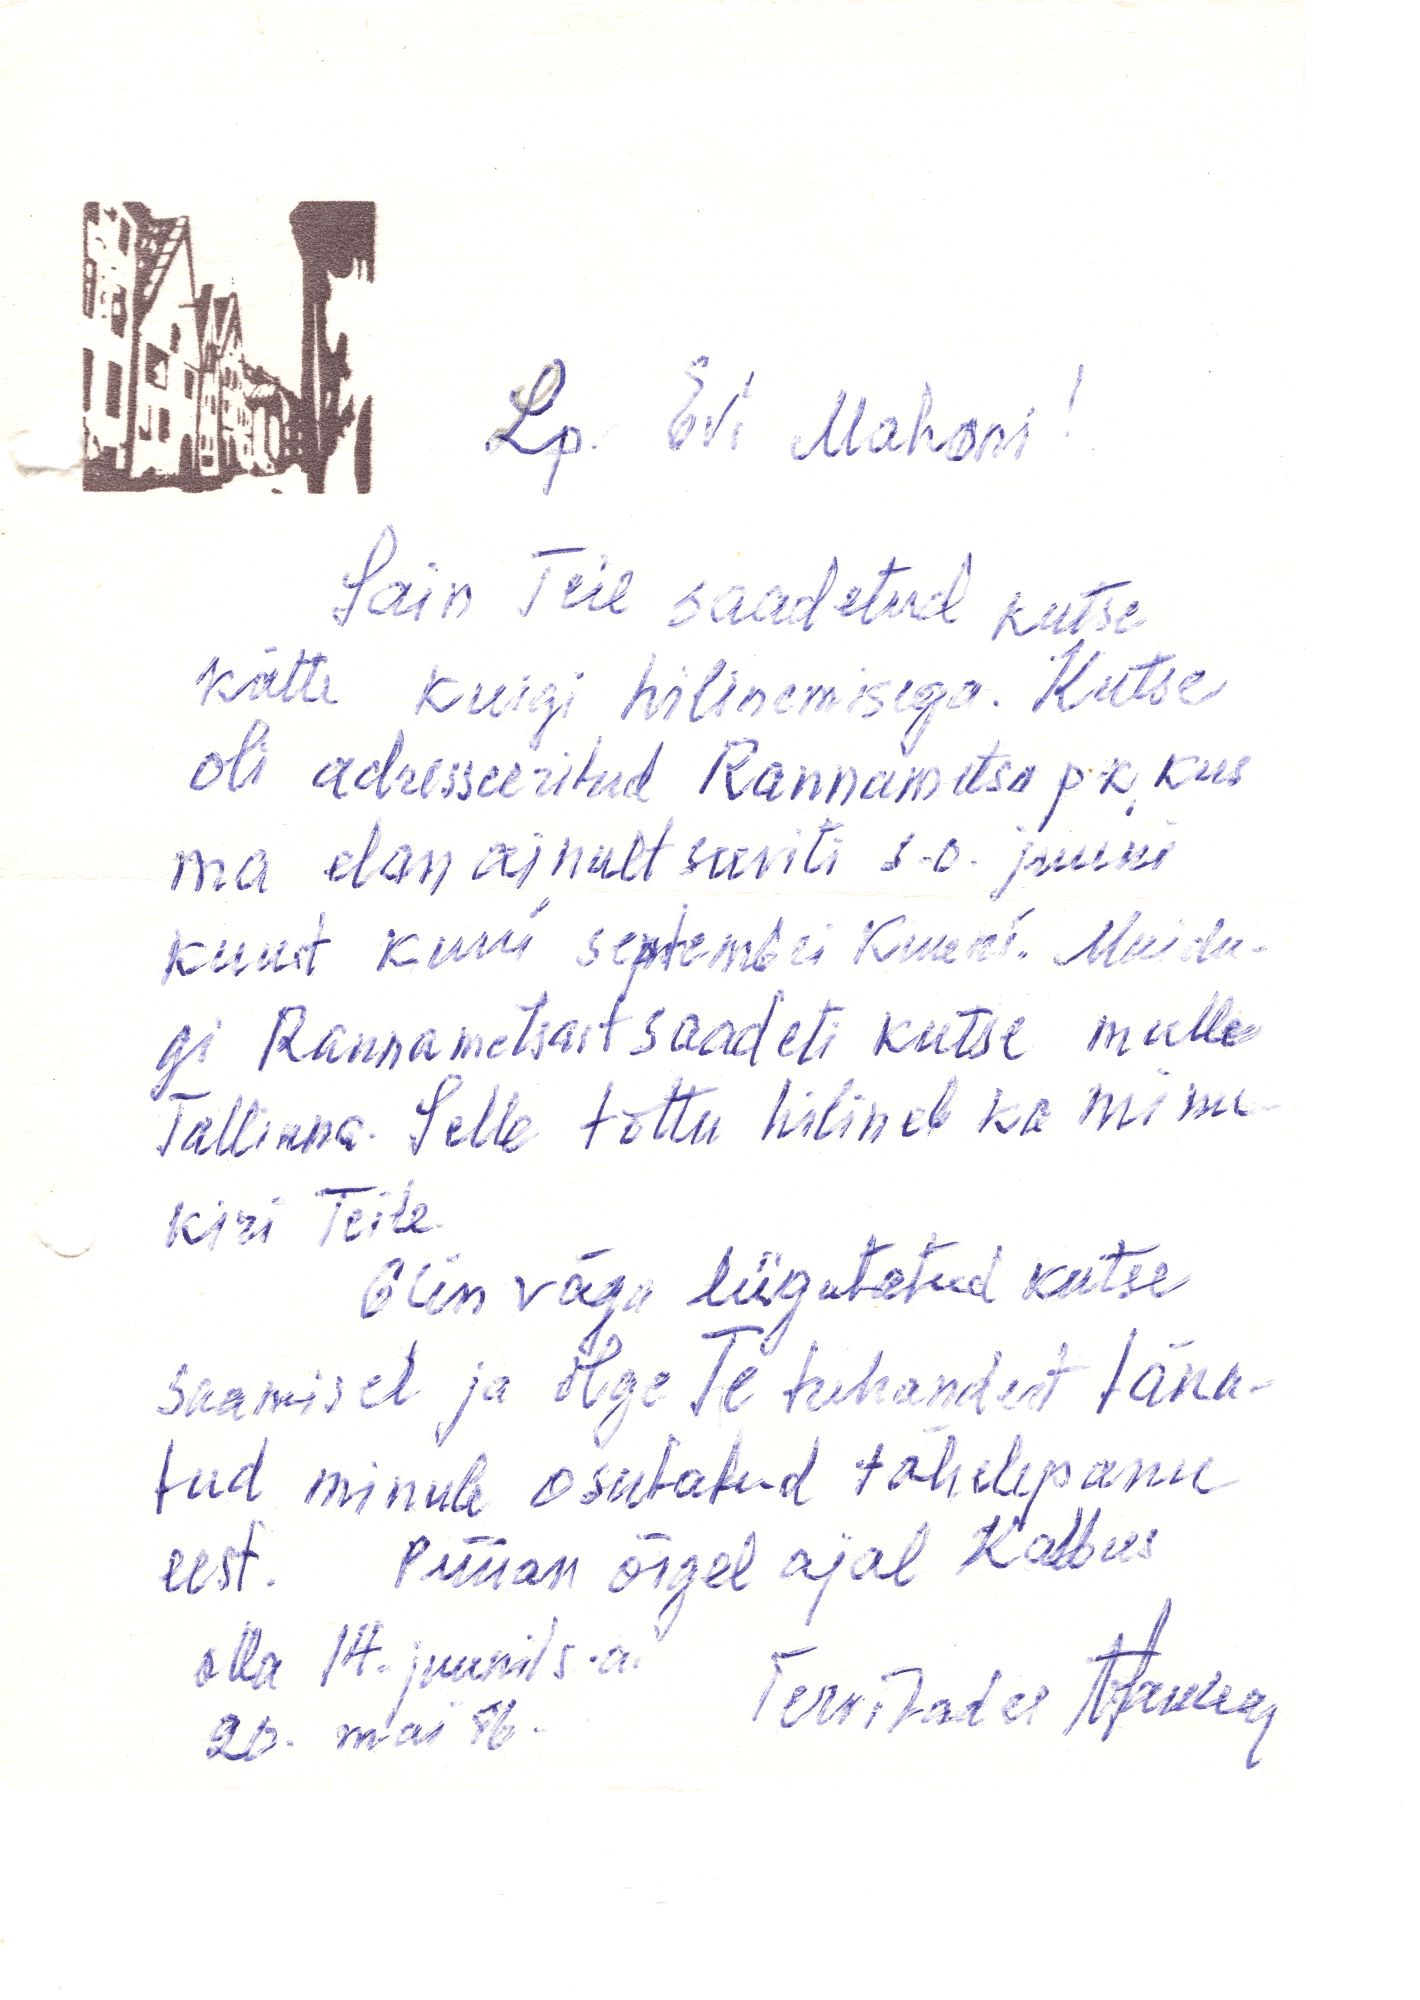 Lp. Evi Mahoni!
Sain Teie saadetud kutse
kätte kuigi hilinemisega. Kutse
oli adresseeritud Rannametsa p-k, kus
ma elan ainult suviti s.o. juuni
kuust kuni septembri kuuni. Muidu-
gi Rannametsast saadeti kutse mulle
Tallinna. Selle tõttu hilineb ka minu
kiri Teile.
Olin väga liigutatud kutse
saamisel ja olge Te tuhandest täna-
tud minule osutatud tähelepanu
eest. Püüan õigel ajal Kabbus
olla 14. juunil s.a.
20. mai 86. Tervitades